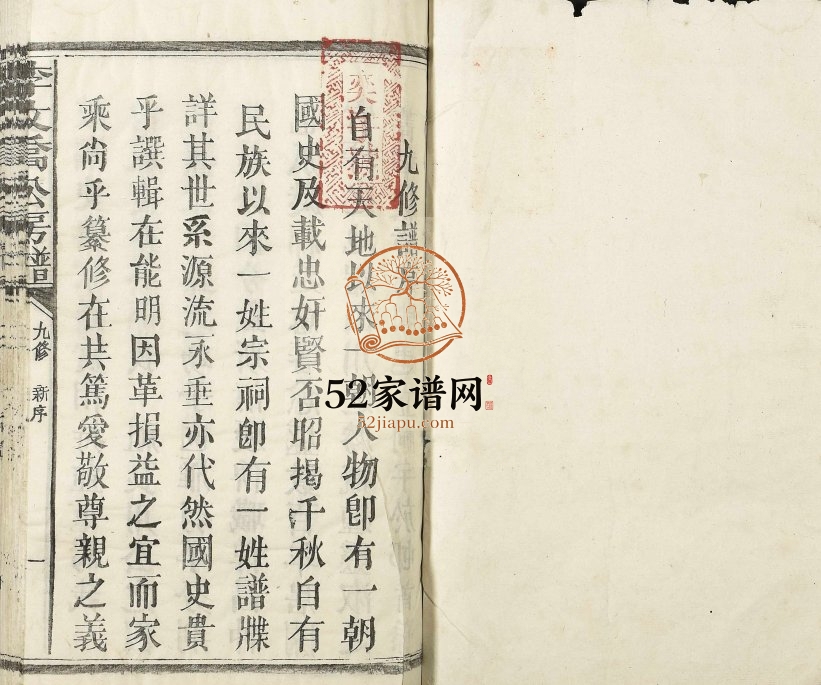 九修譜序
自有天地以來一朝人物卽有一朝
國史及載忠奸賢否昭揭千秋自有
民族以來一姓宗祠卽有一姓譜牒
詳其世系源流永垂亦代然國史貴
乎譔輯在能明因革損益之宜而家
乘尙乎纂修在共篤愛敬尊親之義
李文喬公房譜
九修 新序
一
52家谱网
52jiapu.com